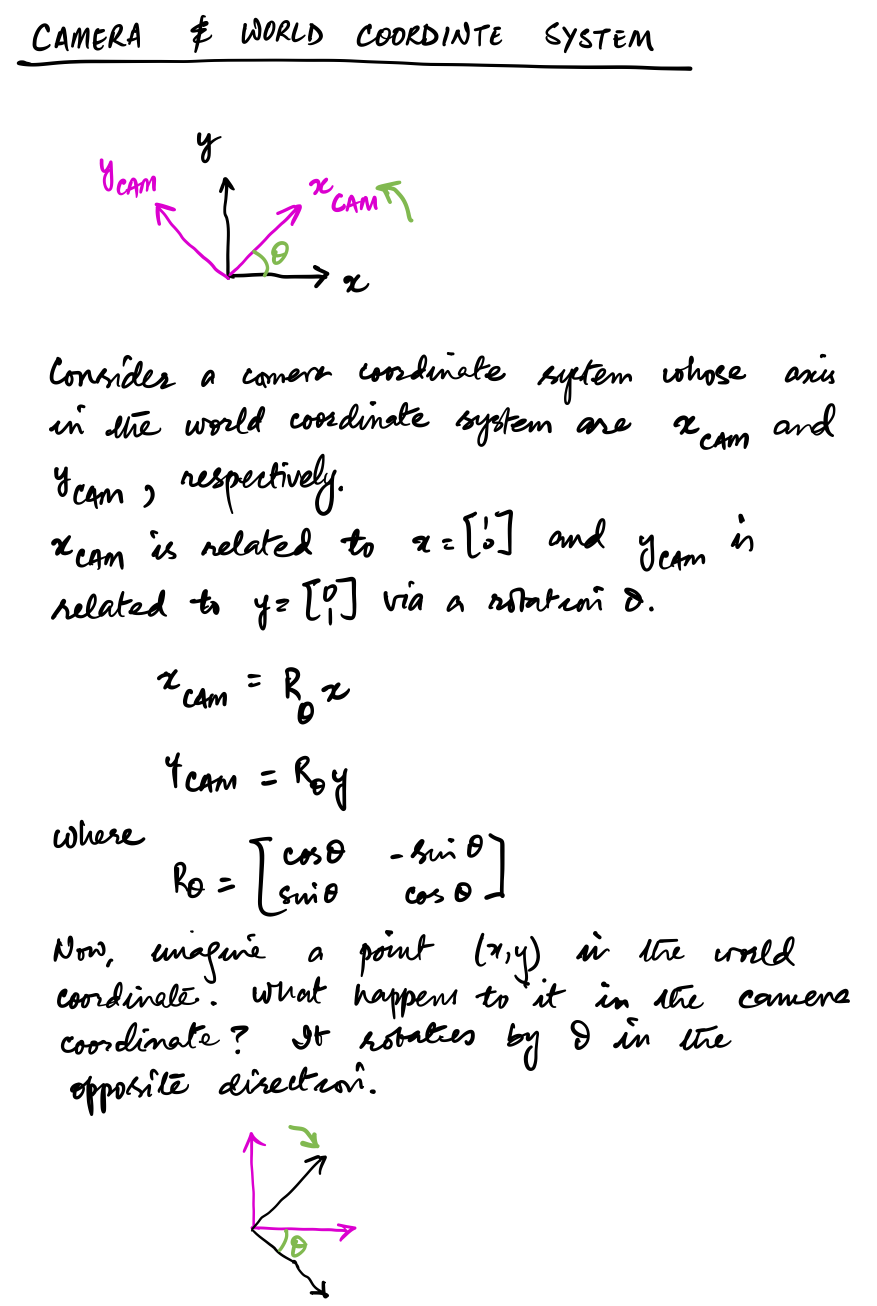 CAMERA & WORLD COORDINTE SYSTEM
y
y_CAM x_CAM
θ
x
Consider a camera coordinate system whose axis
in the world coordinate system are x_CAM and
y_CAM, respectively.
x_CAM is related to x = [1 0] and y_CAM is
related to y = [0 1] via a rotation θ.
x_CAM = R_θ x
y_CAM = R_θ y
where
R_θ = [cosθ -sinθ
sinθ cosθ]
Now, imagine a point (x,y) in the world
coordinate. What happens to it in the camera
coordinate? It rotates by θ in the
opposite direction.
θ